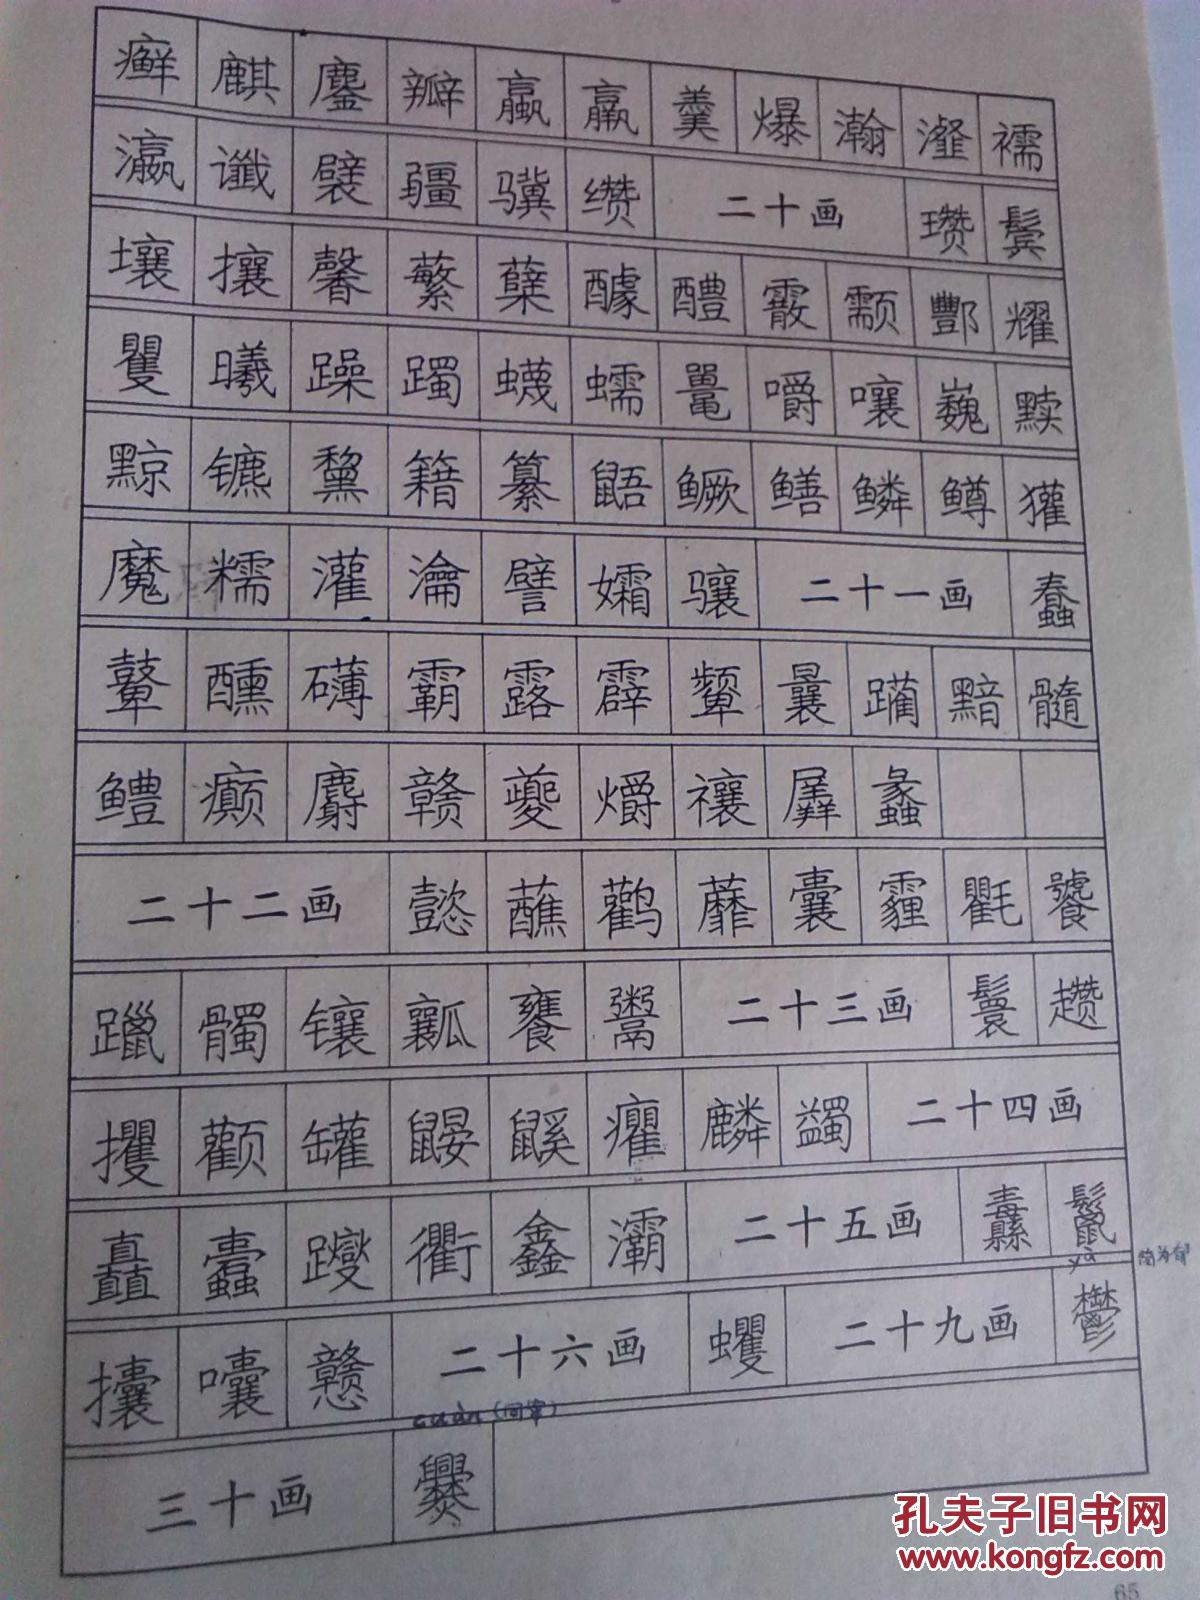 癣 麒 鏖 瓣 蠃 羸 羹 爆 瀚 瀣 襦
瀛 谶 襞 疆 骥 缵 二十画 瓒 鬓
壤 攘 馨 蘩 蘖 醵 醴 霰 颥 酆 耀
矍 曦 躁 躅 蠛 蠕 鼍 嚼 嚷 巍 黩
黥 镳 黧 籍 纂 鼯 鳜 鳝 鳞 鳟 獾
魔 糯 灌 瀹 譬 孀 骧 二十一画 蠢
鼙 醺 礴 霸 露 霹 颦 曩 躏 黯 髓
鳢 癫 麝 赣 夔 爝 禳 羼 蠡
二十二画 懿 蘸 鹳 蘼 囊 霾 氍 饕
躐 髑 镶 瓤 饔 鬻 二十三画 鬟 趱
攫 颧 罐 鼹 鼷 癯 麟 蠲 二十四画
矗 蠹 躞 衢 鑫 灞 二十五画 纛 鬣
攮 囔 戆 二十六画 蠼 二十九画 鬱
cuàn (同窜)
三十画 爨
孔夫子旧书网
www.kongfz.com
65